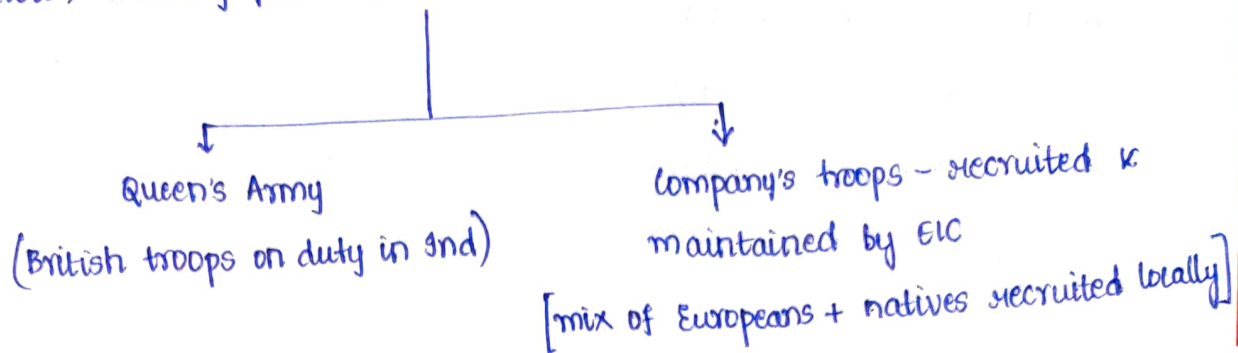 Queen's Army
(British troops on duty in Ind)
Company's troops - recruited &
maintained by EIC
[mix of Europeans + natives recruited locally]